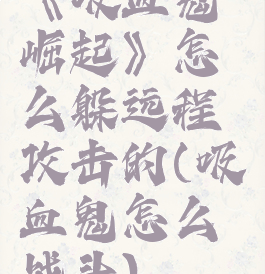 《吸血鬼
崛起》怎
么躲远程
攻击的(吸
血鬼怎么
战斗)